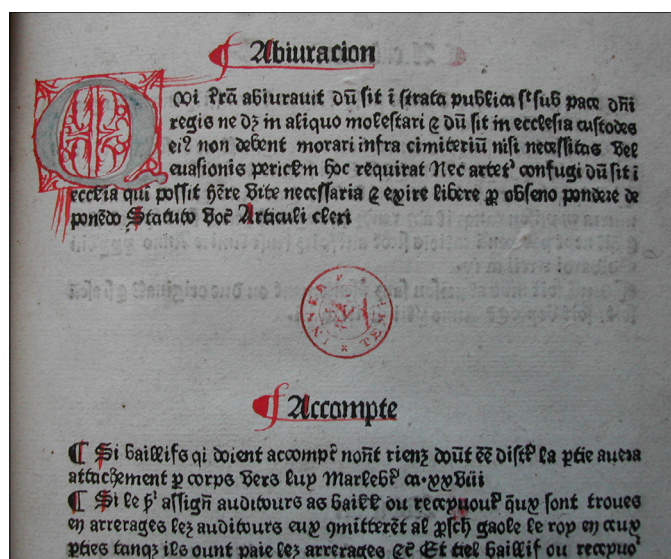 Abiuracion
Qui t̄rā abiurauit dū sit ī strata publica st̄ sub pace dn̄i
regis ne dʒ in aliquo molestari ⁊ dū sit in ecclesia custodes
eiꝰ non debent morari infra cimiteriū nisi necessitas vel
euasionis pericl̄m hoc requirat Nec artetʳ confugi dū sit ī
eccl̄ia qui possit hēre vite necessaria ⁊ exire libere ꝓ obsceno pondere de
ponēdo Statuto voc̄ Articuli cleri
INNER TEMPLE
Accompte
¶ Si baillifs qi doient accomp̄t non̄t rienz dōūt ēē distr̄ la ꝑtie auera
attachement ꝑ corps vers luy Marleb̄r ca. xxviii
¶ Si le s̄r assign̄ auditours as baill̄ ou receyuour̄ q̄ux sont troues
en arrerages lez auditours eux ꝯmitterēt al ꝓsch gaole le roy en ceux
ꝑties tanqʒ ils ount paie lez arrerages ⁊c̄ Et tiel baillif ou receyuoʳ